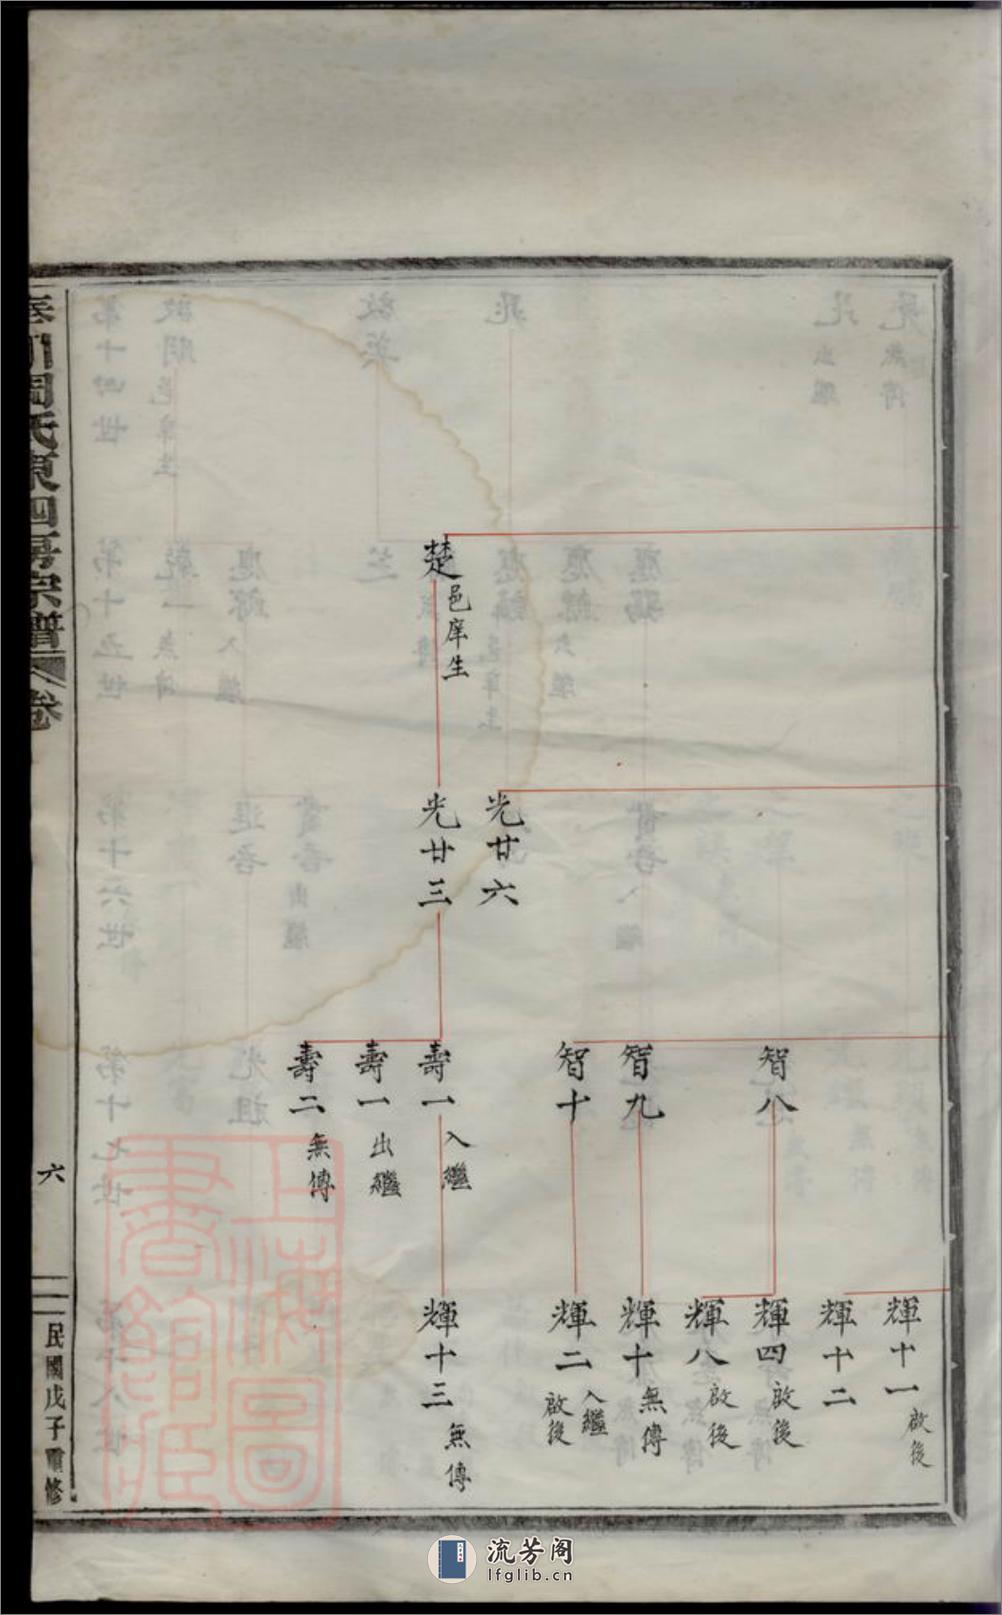 楚 邑庠生
光廿六
光廿三
智八
智九
智十
壽一 入繼
壽一 出繼
壽二 無傳
輝十一 啟後
輝十二
輝四 啟後
輝八 啟後
輝十 無傳
輝二 入繼 啟後
輝十三 無傳
周氏東四房宗譜 卷
六
民國戊子重修
上海圖書館藏
流芳阁
lfglib.cn